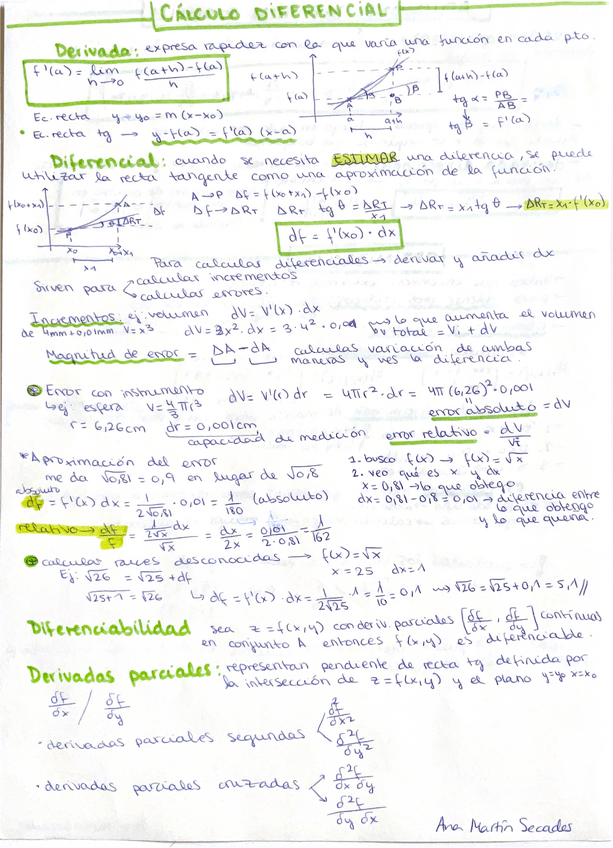 CÁLCULO DIFERENCIAL
Derivada: expresa rapidez con la que varía una función en cada pto.
f'(a) = lim h→0 f(a+h)-f(a) / h
f(x)
f(a+h)
f(a)
a
a+h
h
A
P
B
β
f(a+h)-f(a)
tg α = PB/AB =
tg β = f'(a)
Ec. recta y-y0 = m (x-x0)
• Ec. recta tg → y-f(a) = f'(a) (x-a)
Diferencial: cuando se necesita ESTIMAR una diferencia, se puede
utilizar la recta tangente como una aproximación de la función.
f(x0+x1)
f(x0)
A
P
ΔRT
Δf
x0
x0+x1
x1
A→P Δf = f(x0+x1) - f(x0)
Δf → ΔRT ΔRT tg θ = ΔRT/x1 → ΔRT = x1 tg θ → ΔRT = x1 · f'(x0)
df = f'(x0) · dx
Para calcular diferenciales → derivar y añadir dx
Sirven para calcular incrementos
calcular errores.
Incrementos: ej: volumen dV = V'(x) · dx
de 4mm+0,01mm V=x³ dV = 3x² · dx = 3 · 4² · 0,01 → lo que aumenta el volumen
V total = Vi + dV
Magnitud de error = ΔA - dA calculas variación de ambas
maneras y ves la diferencia.
Error con instrumento dV = V'(r) dr = 4πr² · dr = 4π(6,26)² · 0,001
↳ ej: esfera V = 4/3 πr³
error absoluto = dV
r = 6,26cm dr = 0,001cm,
capacidad de medición error relativo = dV/Vi
* Aproximación del error
me da √0,81 = 0,9 en lugar de √0,8
1. busco f(x) → f(x) = √x
2. veo qué es x y dx
x = 0,81 → lo que obtengo
dx = 0,81 - 0,8 = 0,01 → diferencia entre
lo que obtengo
y lo que quería.
absoluto
df = f'(x) dx = 1/2√0,81 · 0,01 = 1/180 (absoluto)
relativo → df/f = 1/2√x dx / √x = dx/2x = 0,01/2·0,81 = 1/162
calcular raíces desconocidas → f(x) = √x
x = 25 dx = 1
Ej: √26 = √25 + df
√25+1 = √26 ↳ df = f'(x) · dx = 1/2√25 · 1 = 1/10 = 0,1 → √26 = √25 + 0,1 = 5,1 //
Diferenciabilidad sea z = f(x,y) con deriv. parciales [δf/δx, δf/δy] continuas
en conjunto A entonces f(x,y) es diferenciable.
Derivadas parciales: representan pendiente de recta tg definida por
la intersección de z = f(x,y) y el plano y=y0 x=x0
δf/δx / δf/δy
· derivadas parciales segundas δ²f/δx²
δ²f/δy²
· derivadas parciales cruzadas δ²f/δx δy
δ²f/δy δx
Ana Martín Secades